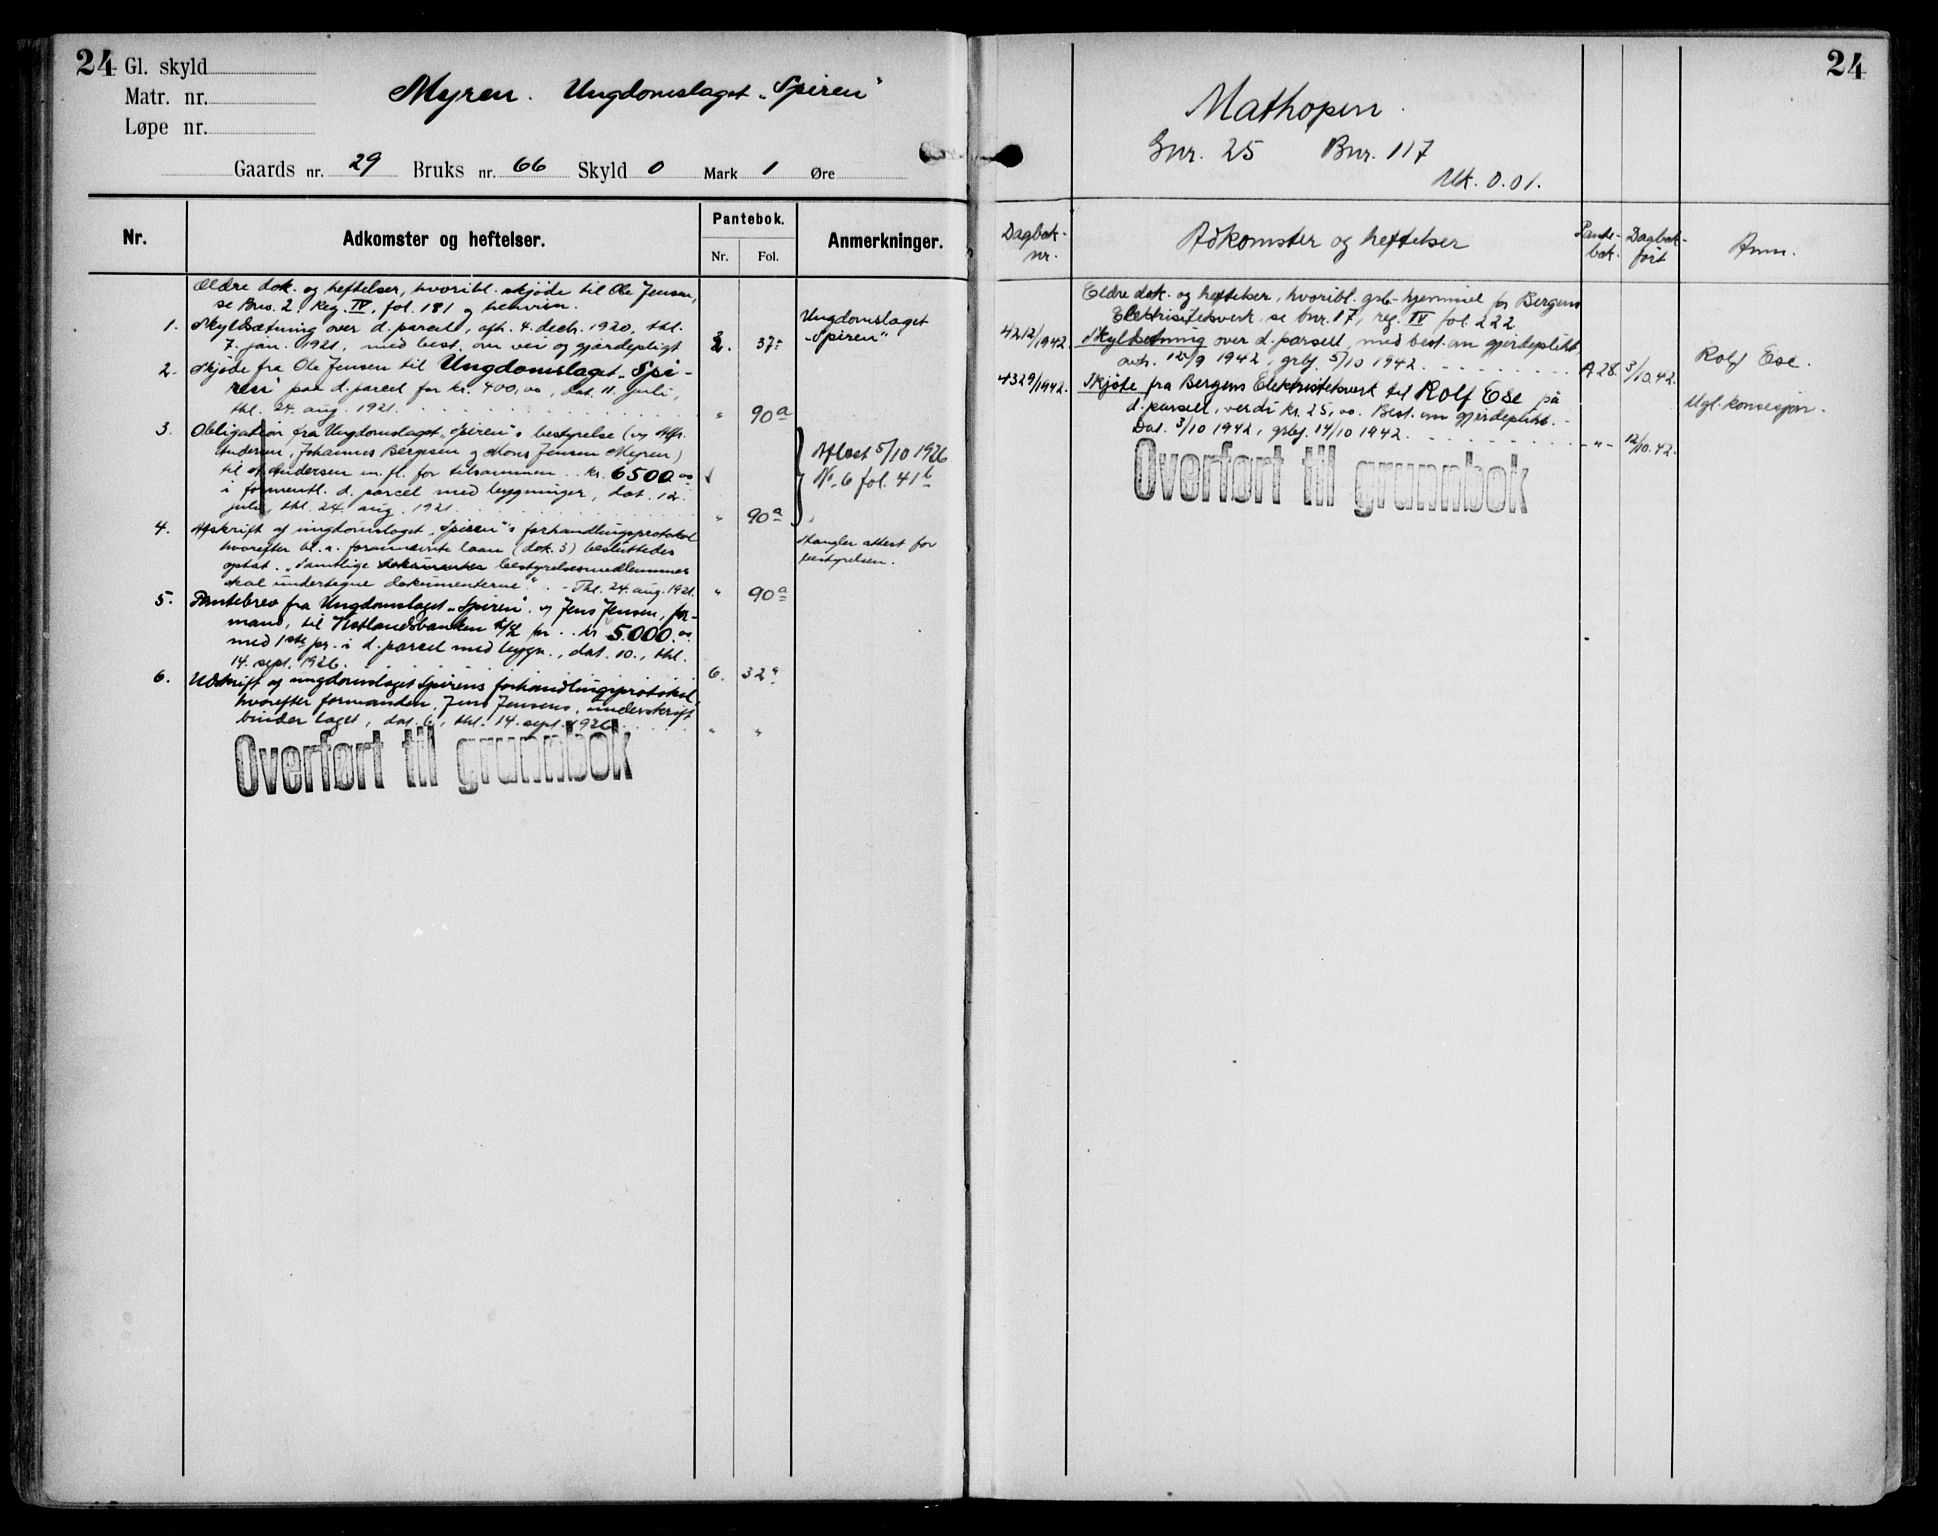 24
Gl. skyld
Matr. nr.
Løpe nr.
Myren. Ungdomslaget „Spiren"
Gaards nr. 29 Bruks nr. 66 Skyld 0 Mark 1 Øre
Nr. Adkomster og heftelser. Pantebok. Anmerkninger.
Nr. Fol.
Ældre dok. og heftelser, hvoribl. skjøde til Ole Jensen,
se Brno. 2, Reg. IV, fol. 181 og henvisn.
1. Skyldsætning over d. parcel, afh. 4. decbr. 1920, thl.
7. jan. 1921, med best. om vei og gjerdepligt 2. 37
Ungdomslaget
„Spiren"
2. Skjøde fra Ole Jensen til Ungdomslaget „Spi-
ren" paa d. parcel for kr. 400,00, dat. 11. juli,
thl. 24. aug. 1921. " 90a
3. Obligation fra Ungdomslaget „Spiren"s bestyrelse (ved
Andersen, Johannes Bergesen og Mons Jensen Myren)
til Andersen m. fl. for tilsammen kr. 6500.00
i formentl. d. parcel med bygninger, dat. 12.
juli, thl. 24. aug. 1921. " 90a
Aflæst 5/10 1926
No 6 fol. 41b
4. Afskrift af ungdomslaget „Spiren"s forhandlingsprotokol
hvorefter bl. a. forannævnte laan (dok. 3) besluttedes
optat. „Samtlige dokumenter bestyrelsesmedlemmer
skal undertegne dokumenterne". - Thl. 24. aug. 1921. " 90a
Mangler attest for
bestyrelsen.
5. Pantebrev fra Ungdomslaget „Spiren" v/ Jens Jensen, for-
mand, til Vestlandsbanken A/L for kr. 5.000.00
med 1ste pr. i d. parcel med bygn., dat. 10., thl.
14. sept. 1926. 6. 32a
6. Utskrift av ungdomslaget Spirens forhandlingsprotokol
hvorefter formanden, Jens Jensens, underskrift
binder laget, dat. 6., thl. 14. sept. 1926. " "
Overført til grunnbok
24
Mathopen.
Gnr. 25 Bnr. 117
Mk. 0.01.
Dagbok-
nr.
Adkomster og heftelser
Pante-
bok.
Dagbok-
ført
Anm.
Eldre dok. og heftelser, hvoribl. grb.-hjemmel for Bergens
Elektrisitetsverk se bnr. 17, reg. IV fol. 222
4212/1942. Skyldsetning over d. parsell, med best. om gjerdeplikt
avh. 12/9 1942, grbf. 5/10 1942. A 28. 3/10.42.
Rolf Ese.
4329/1942. Skjøte fra Bergens Elektrisitetsverk til Rolf Ese på
d. parsell, verdi kr. 25,00. Best. om gjerdeplikt.
Dat. 3/10 1942, grbf. 14/10 1942. - " - 12/10.42.
Mgl. konsesjon.
Overført til grunnbok